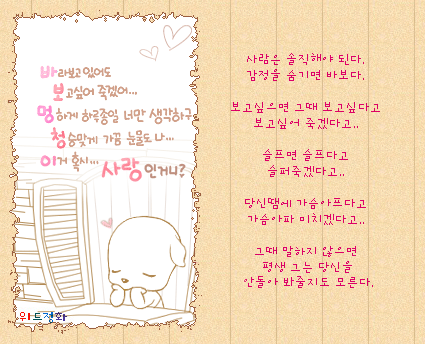 바라보고 있어도
보고싶어 죽겠어...
멍하게 하루종일 너만 생각하구
청승맞게 가끔 눈물도 나...
이거 혹시... 사랑인거니?
위트정화
사람은 솔직해야 된다.
감정을 숨기면 바보다.
보고싶으면 그때 보고싶다고
보고싶어 죽겠다고..
슬프면 슬프다고
슬퍼죽겠다고..
당신땜에 가슴아프다고
가슴아파 미치겠다고..
그때 말하지 않으면
평생 그는 당신을
안돌아 봐줄지도 모른다.